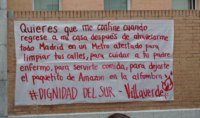 Quieres que me confine cuando
regrese a mi casa después de atravesarme
todo Madrid en un Metro atestado para
limpiar tus calles, para cuidar a tu padre
enfermo, para servirte comida, para dejarte
el paquetito de Amazon en la alfombra
#DIGNIDAD DEL SUR - Villaverde